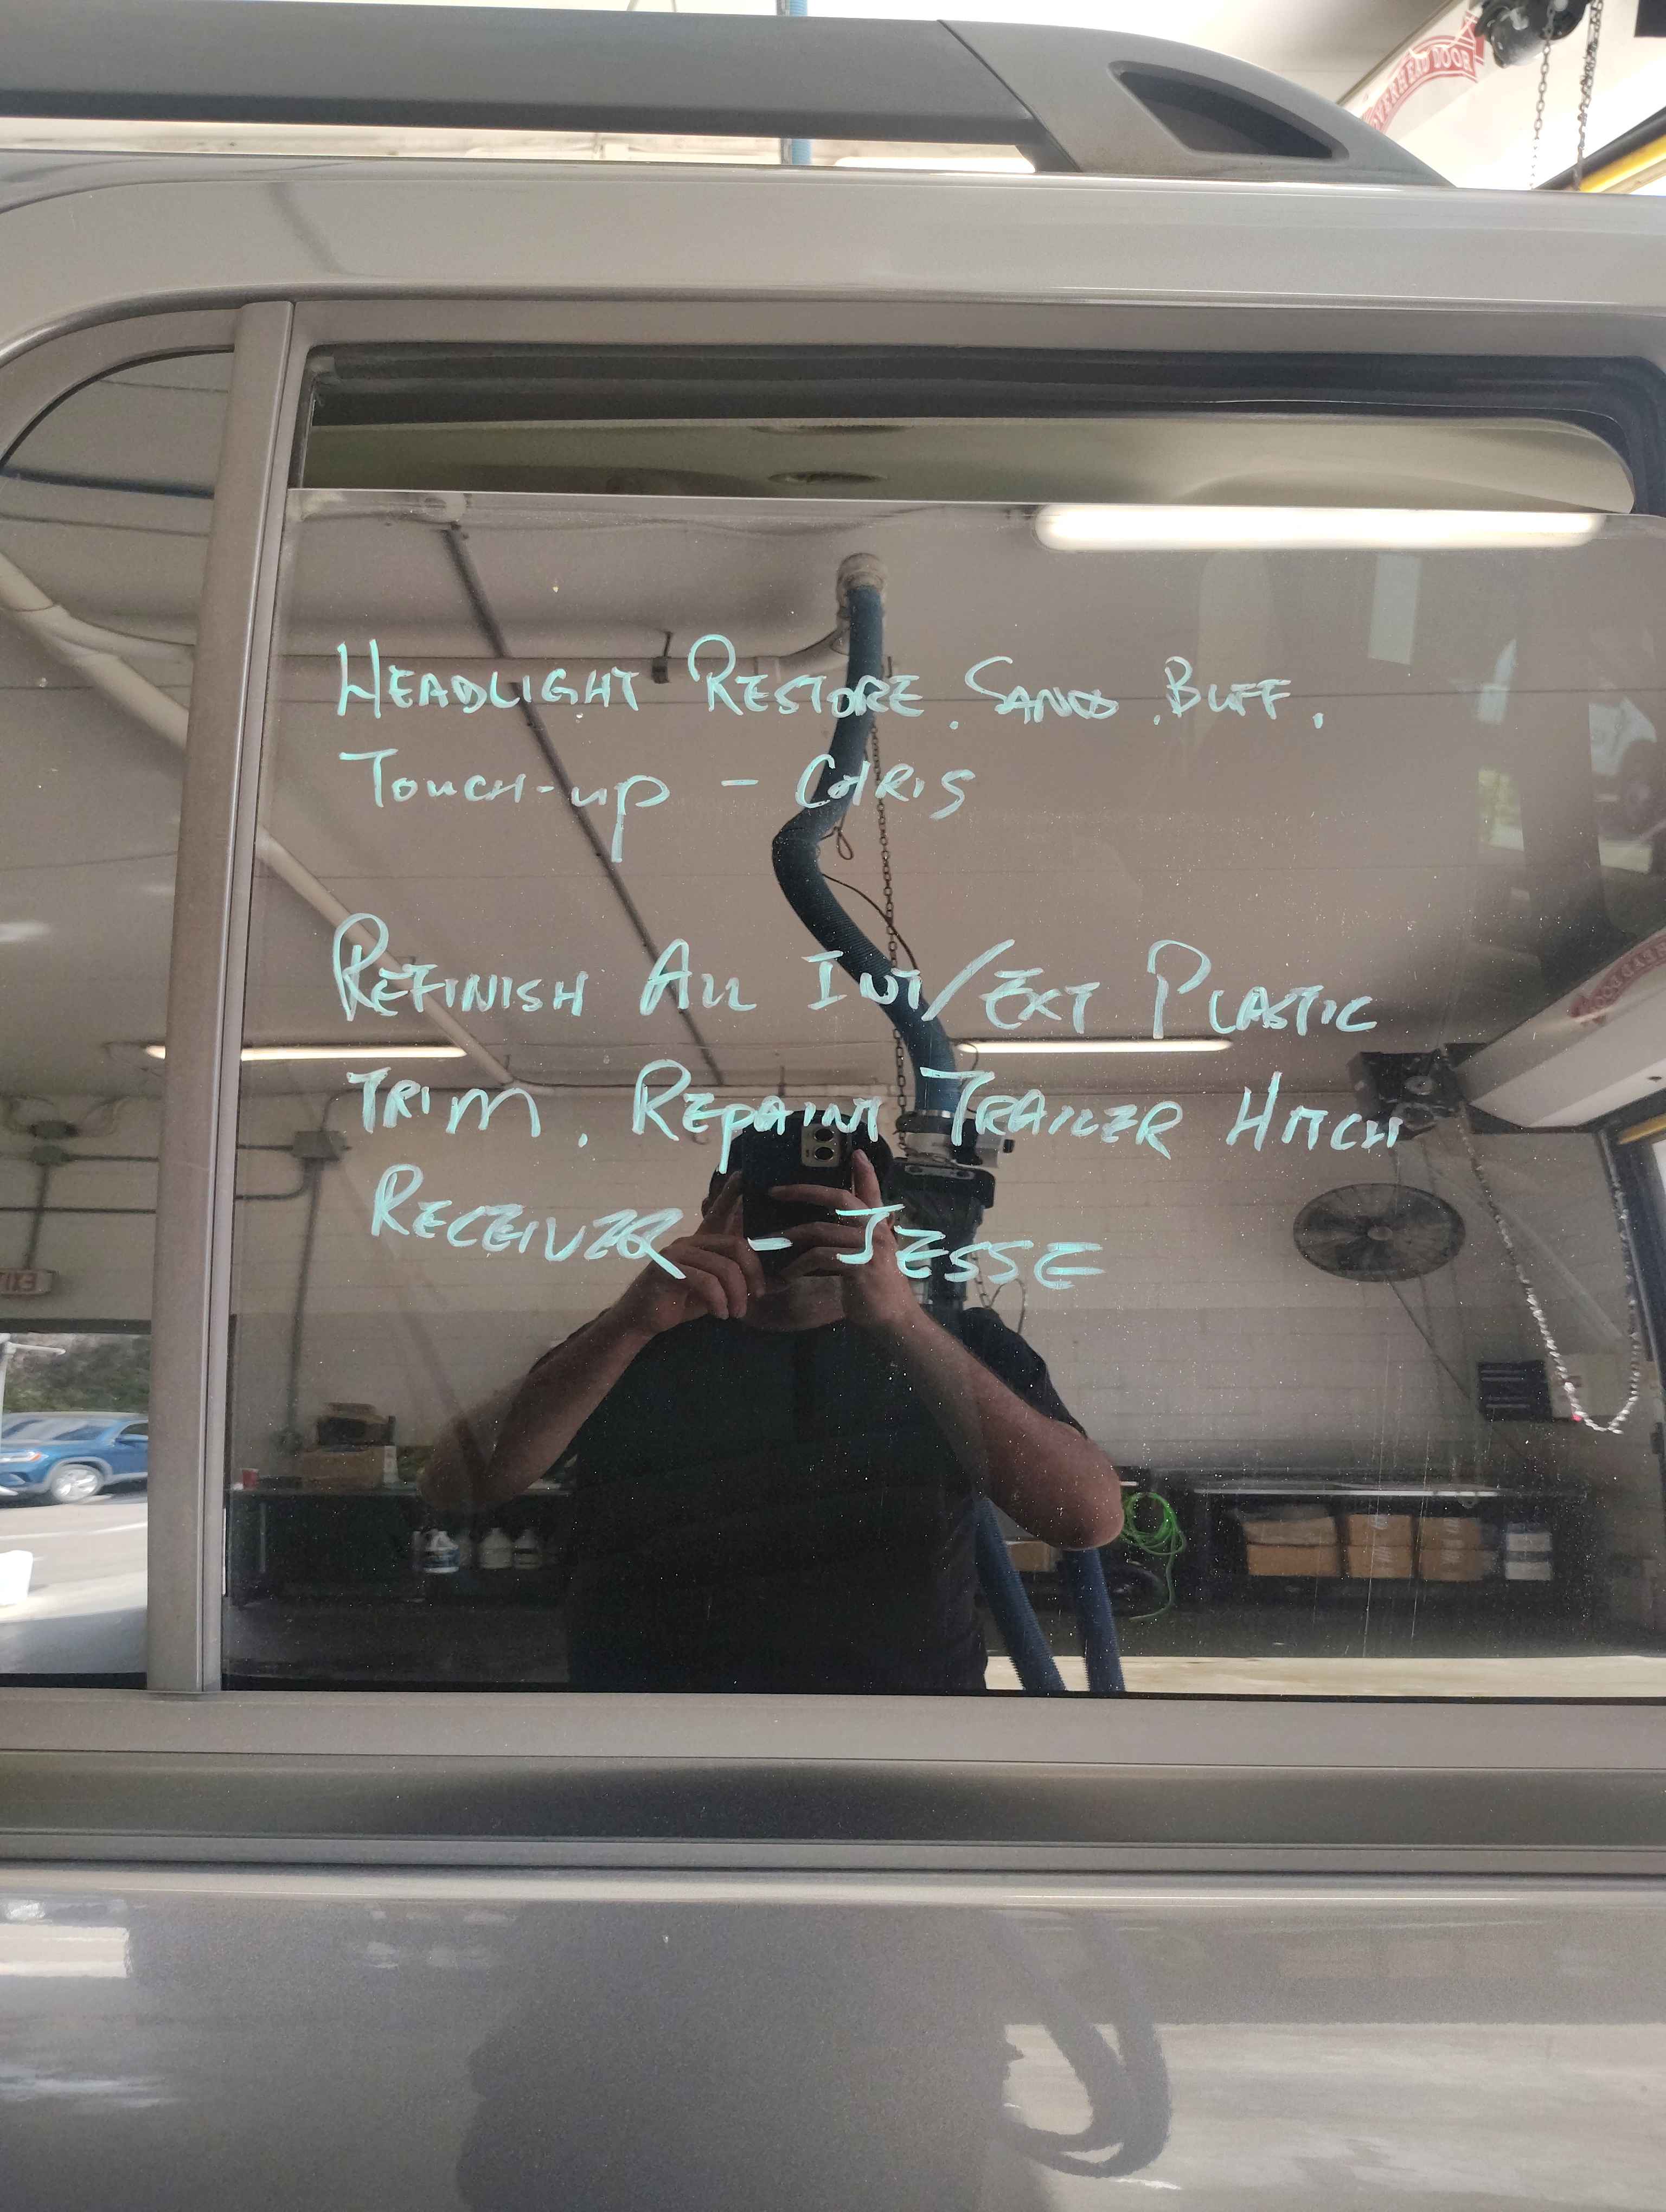 OVERHEAD DOOR
HEADLIGHT RESTORE. SAND. BUFF.
TOUCH-UP - CHRIS
REFINISH ALL INT/EXT PLASTIC
TRIM. REPAINT TRAILER HITCH
RECEIVER - JESSE
EXIT